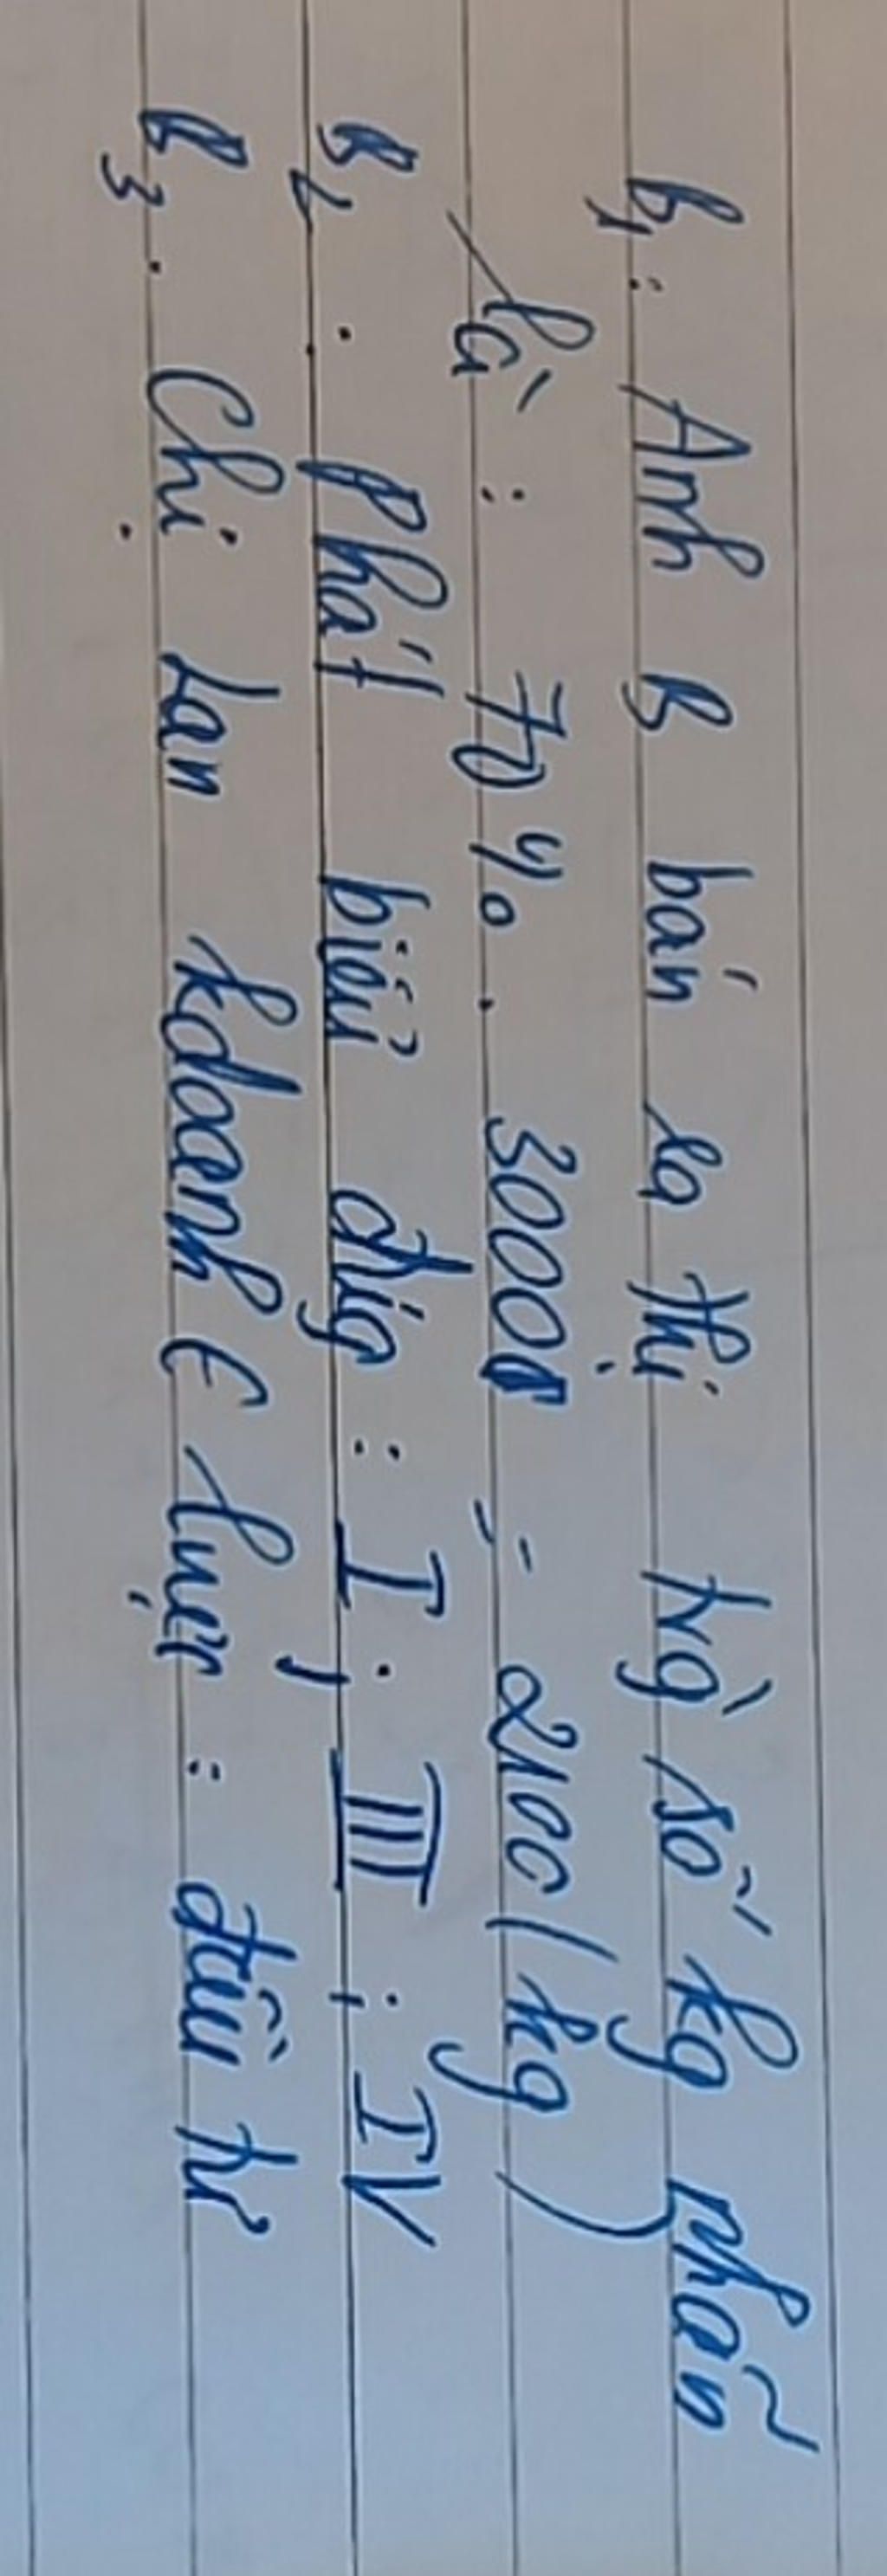 B1: Anh B bán ra thị trg số kg nhãn
là : 70%. 3000 = 2100 (kg)
B2. Phát biểu đúg : I ; III ; IV
B3. Chị Lan kdoanh € lực : đầu tư